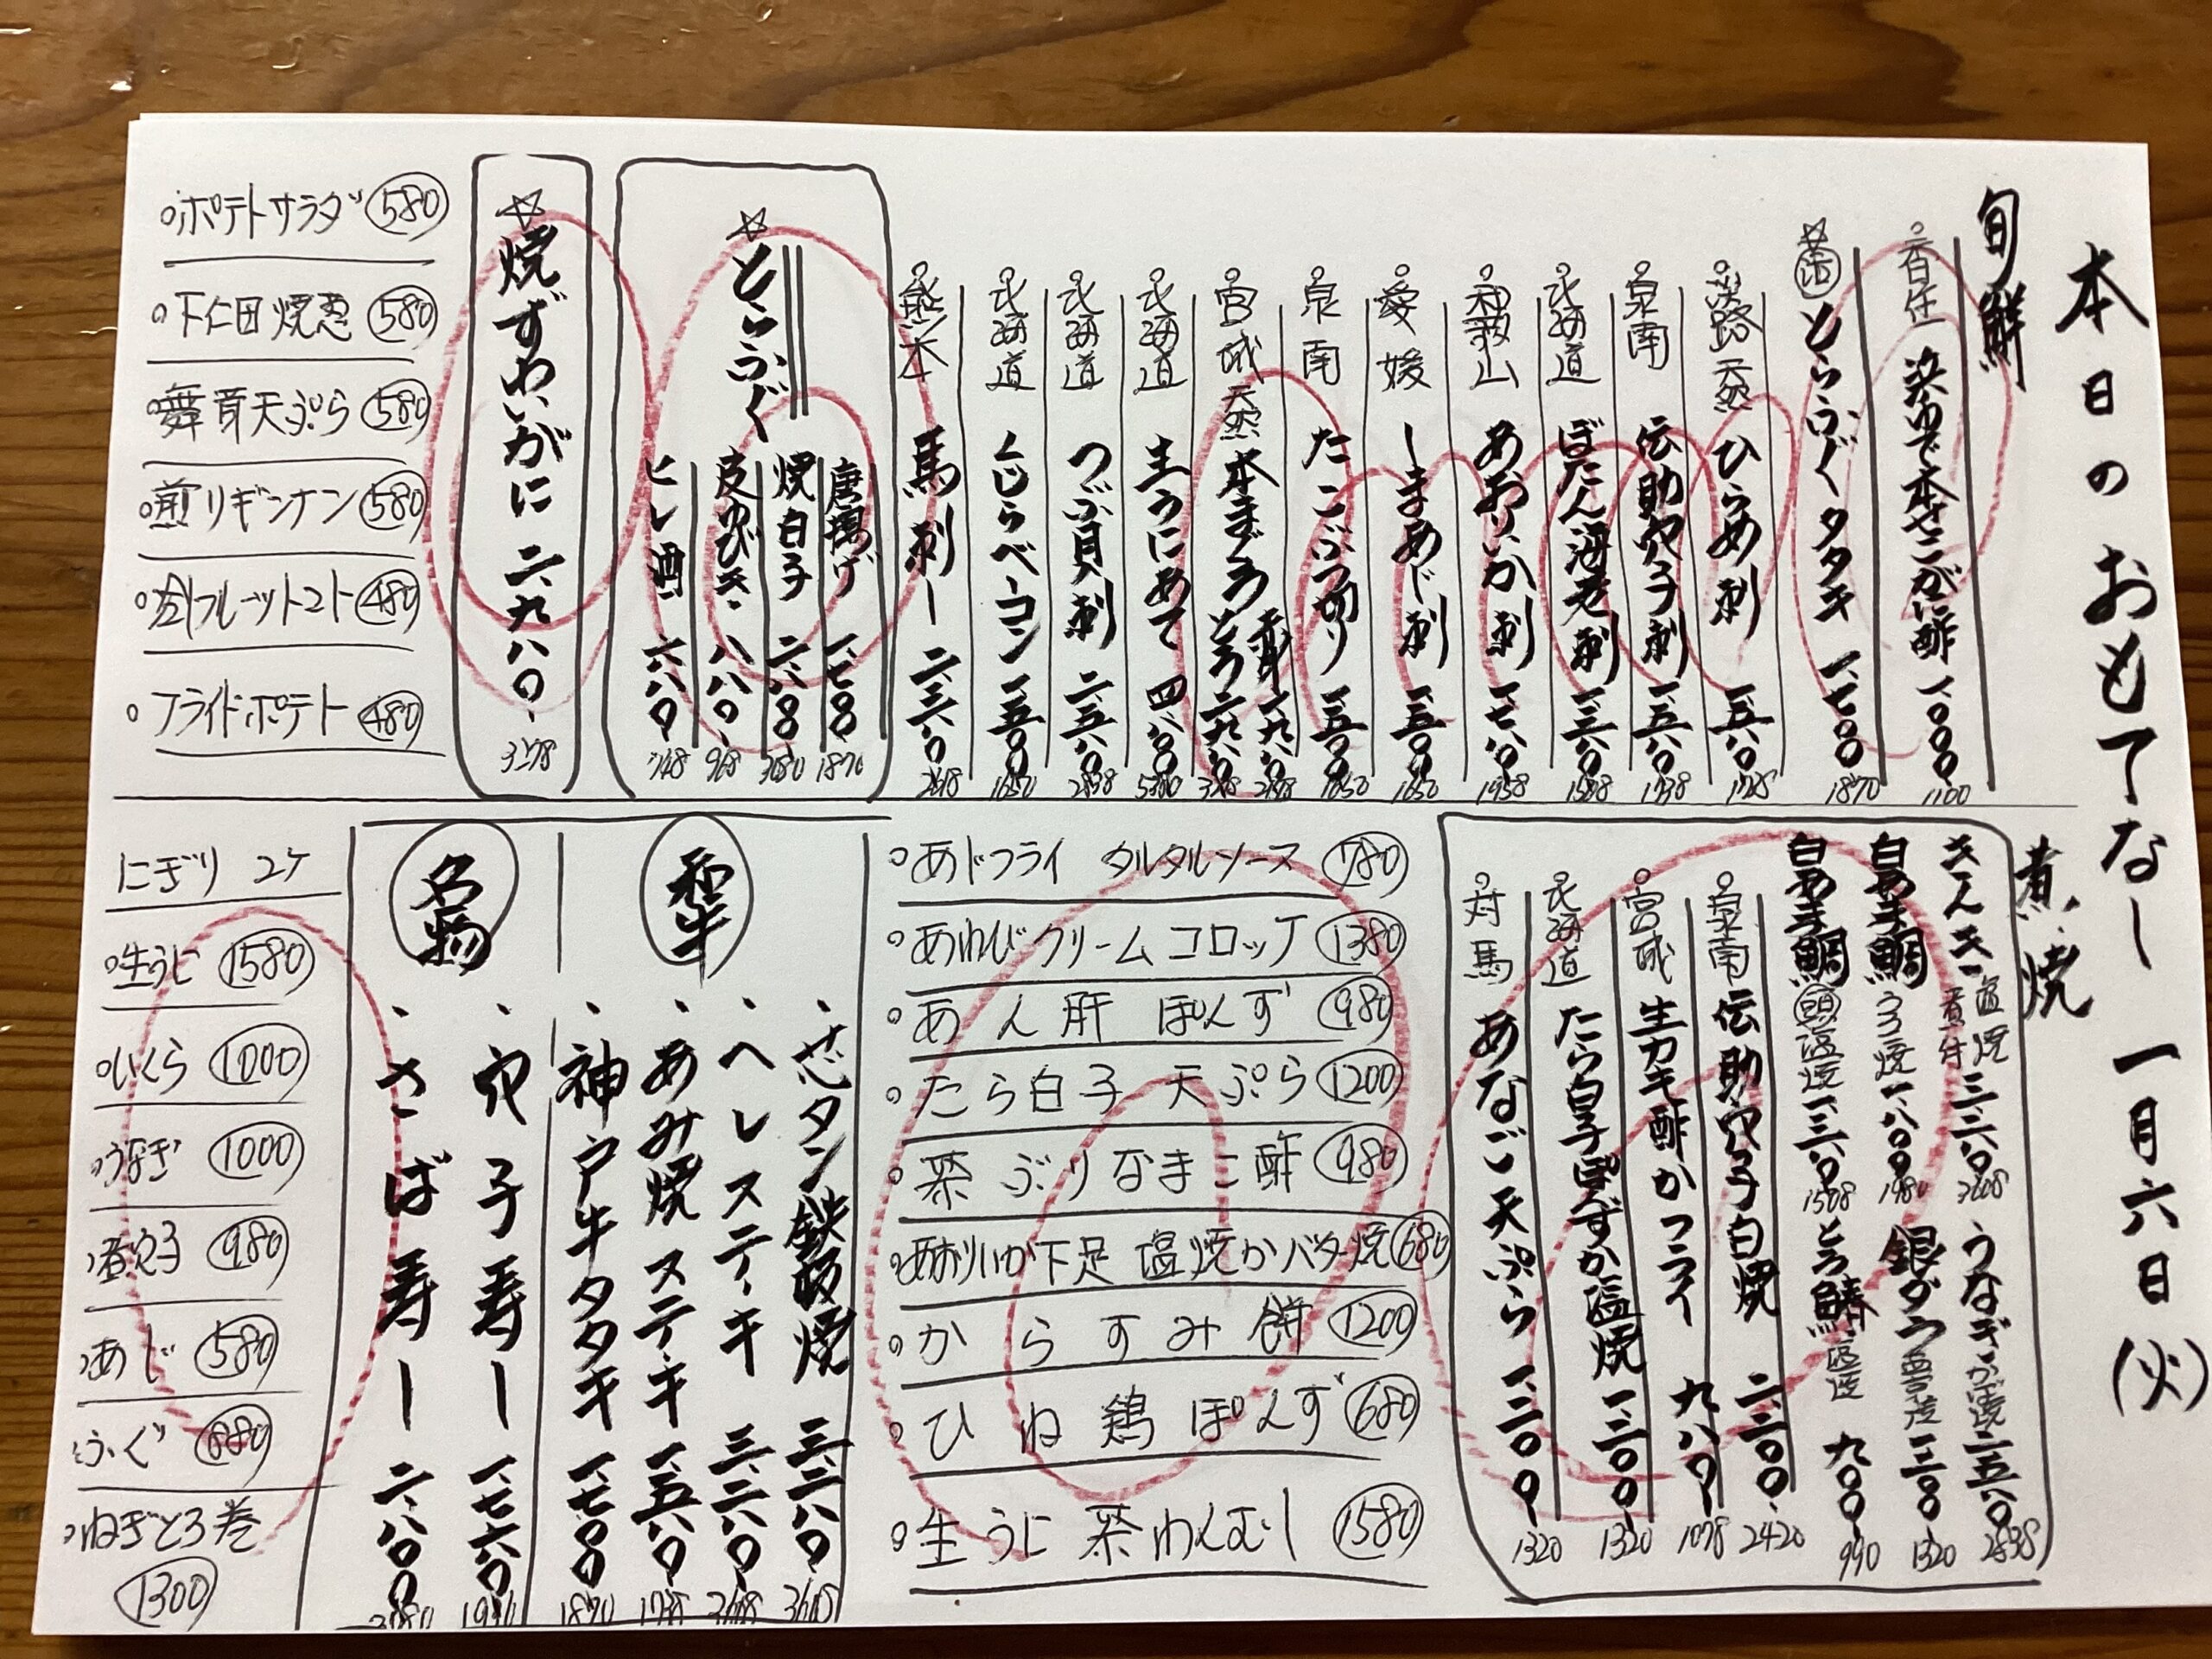 本日のおもてなし 一月六日(火)
旬鮮
香住 浜ゆで本せこがに酢 一、〇〇〇 1100
とらふぐタタキ 一、七〇〇 1870
淡路 天然 ひらめ刺 一、五八〇 1738
泉南 伝助穴子刺 一、五八〇 1738
北海道 ぼたん海老刺
和歌山 あおりいか刺 一、七八〇 1958
愛媛 しまあじ刺 一、五〇〇 1650
泉南 たこぶつ切り 一、五〇〇 1650
宮城 天然 本まぐろ 赤身 一、九八〇 とろ 二、九八〇
北海道 生うにあて 四、八〇〇
北海道 つぶ貝刺 二、五八〇 2838
北海道 くじらベーコン 一、五〇〇 1650
熊本 馬刺し
☆とらふぐ
唐揚げ 一、七〇〇 1870
焼白子 二、八〇〇 3080
皮ゆびき 八八〇 968
ヒレ酒 六八〇 748
☆焼ずわいがに 二、九八〇 3278
ポテトサラダ 580
下仁田焼葱 580
舞茸天ぷら 580
煎りギンナン 580
フルーツトマト 480
フライドポテト 480
煮・焼
きんき 塩焼 煮付 3608
白甘鯛 うろこ焼 一、八〇〇 1980
白甘鯛 頭 塩焼 1508
うなぎかば焼 二、五八〇 2838
銀ダラ 一、二〇〇 1320
とろ鯖 塩焼 九〇〇 990
泉南 伝助穴子白焼 二、二〇〇 2420
宮城 生カキ酢かフライ 九八〇 1078
北海道 たら白子ぽんずか塩焼 一、二〇〇 1320
対馬 あなご天ぷら 一、二〇〇 1320
あじフライ タルタルソース 780
あわびクリームコロッケ 1380
あん肝ぽんず 980
たら白子天ぷら 1200
茶ぶりなまこ酢 980
あおりいか下足 塩焼かバター焼 680
からすみ餅 1200
ひね鶏ぽんず 680
生うに茶わんむし 1580
和牛
・芯タン鉄板焼 三、二八〇 3608
・ヘレステーキ 三、二八〇 3608
・あみ焼ステーキ 一、五八〇 1738
・神戸牛タタキ 一、七〇〇 1870
名物
・穴子寿し 一、七六〇
・さば寿し 二、八〇〇 3080
にぎり 2ケ
生うに 1580
いくら 1000
うなぎ 1000
煮穴子 980
あじ 580
ふぐ 880
ねぎとろ巻
1300